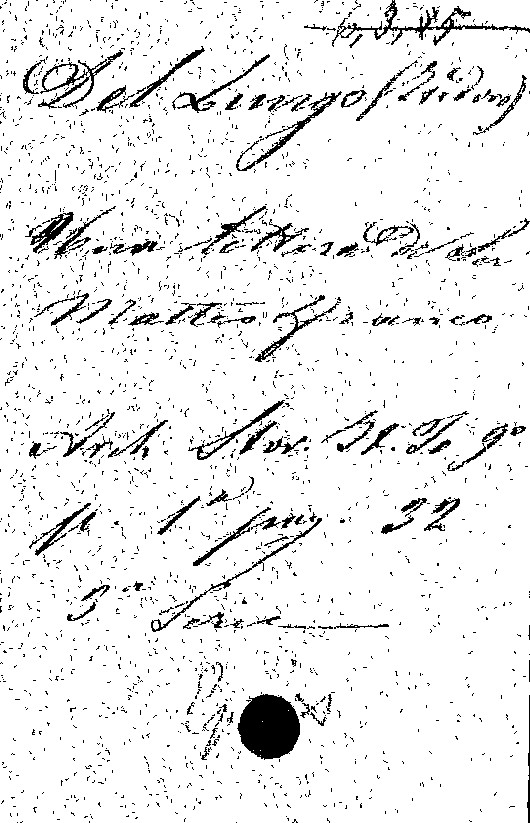 6, 3, 85
Del Lungo (Isidoro)
Una lettera di Ser
Matteo Franco
Arch. Stor. It. To 9°
p. 1ª pag. 32
3ª Serie